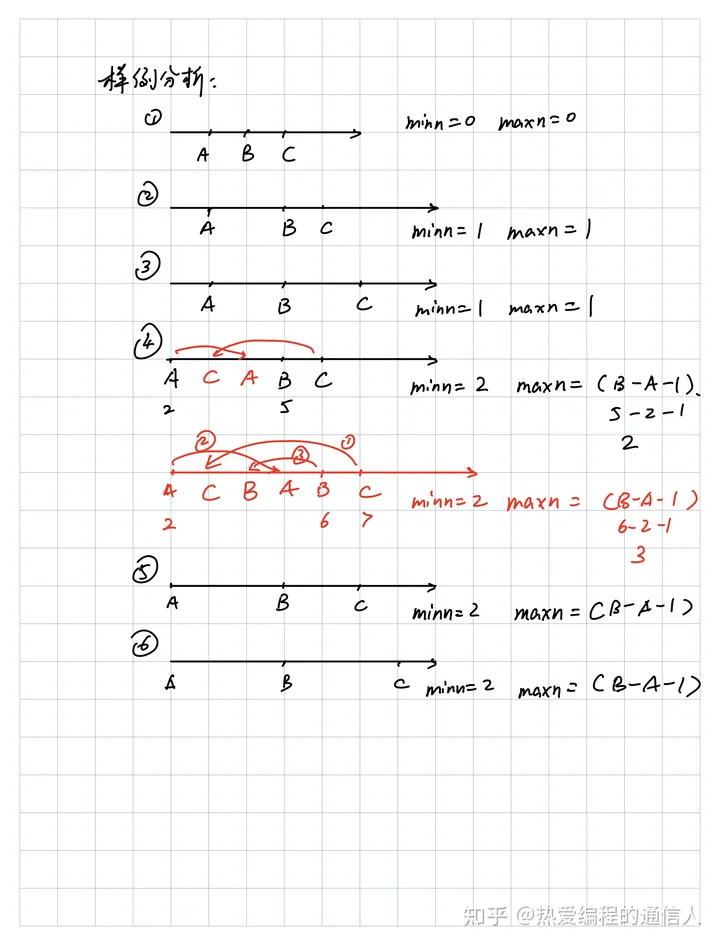 样例分析:
①
minn=0 maxn=0
A B C
②
A B C
minn=1 maxn=1
③
A B C
minn=1 maxn=1
④
A C A B C
minn=2 maxn=(B-A-1).
2 5
5-2-1
2
② ③ ①
A C B A B C
minn=2 maxn=(B-A-1)
2 6 7
6-2-1
3
⑤
A B C
minn=2 maxn=(B-A-1)
⑥
A B C
minn=2 maxn=(B-A-1)
知乎 @热爱编程的通信人